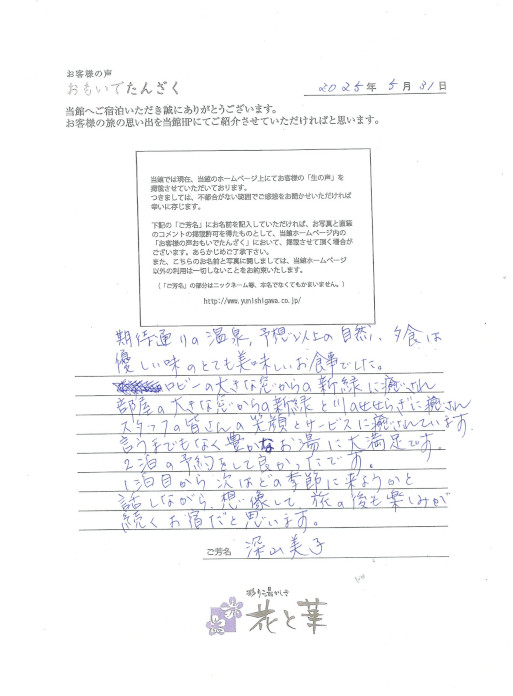 お客様の声
おもいでたんざく
2025年 5月 31日
当館へご宿泊いただき誠にありがとうございます。
お客様の旅の思い出を当館HPにてご紹介させていただければと思います。
当館では現在、当館のホームページ上にてお客様の「生の声」を
掲載させていただいております。
つきましては、不都合がない範囲でご感想をお聞かせいただければ
幸いに存じます。
下記の「ご芳名」にお名前を記入していただければ、お写真と直筆
のコメントの掲載許可を得たものとして、当館ホームページ内の
「お客様の声おもいでたんざく」において、掲載させて頂く場合が
ございます。あらかじめご了承下さい。
また、こちらのお名前と写真に関しましては、当館ホームページ
以外の利用は一切しないことをお約束いたします。
（「ご芳名」の部分はニックネーム等、本名でなくてもかまいません。）
http://www.yunishigawa.co.jp/
期待通りの温泉、予想以上の自然、夕食は
優しい味のとても美味しいお食事でした。
ロビーの大きな窓からの新緑に癒され
部屋の大きな窓からの新緑と川のせせらぎに癒され
スタッフの皆さんの笑顔とサービスに癒されています。
言うまでもなく豊かなお湯に大満足です。
2泊の予約をして良かったです。
1泊目から次はどの季節に来ようかと
話しながら、想像して、旅の後も楽しみが
続くお宿だと思います。
ご芳名 深山美子
彩り湯かしき
花と華